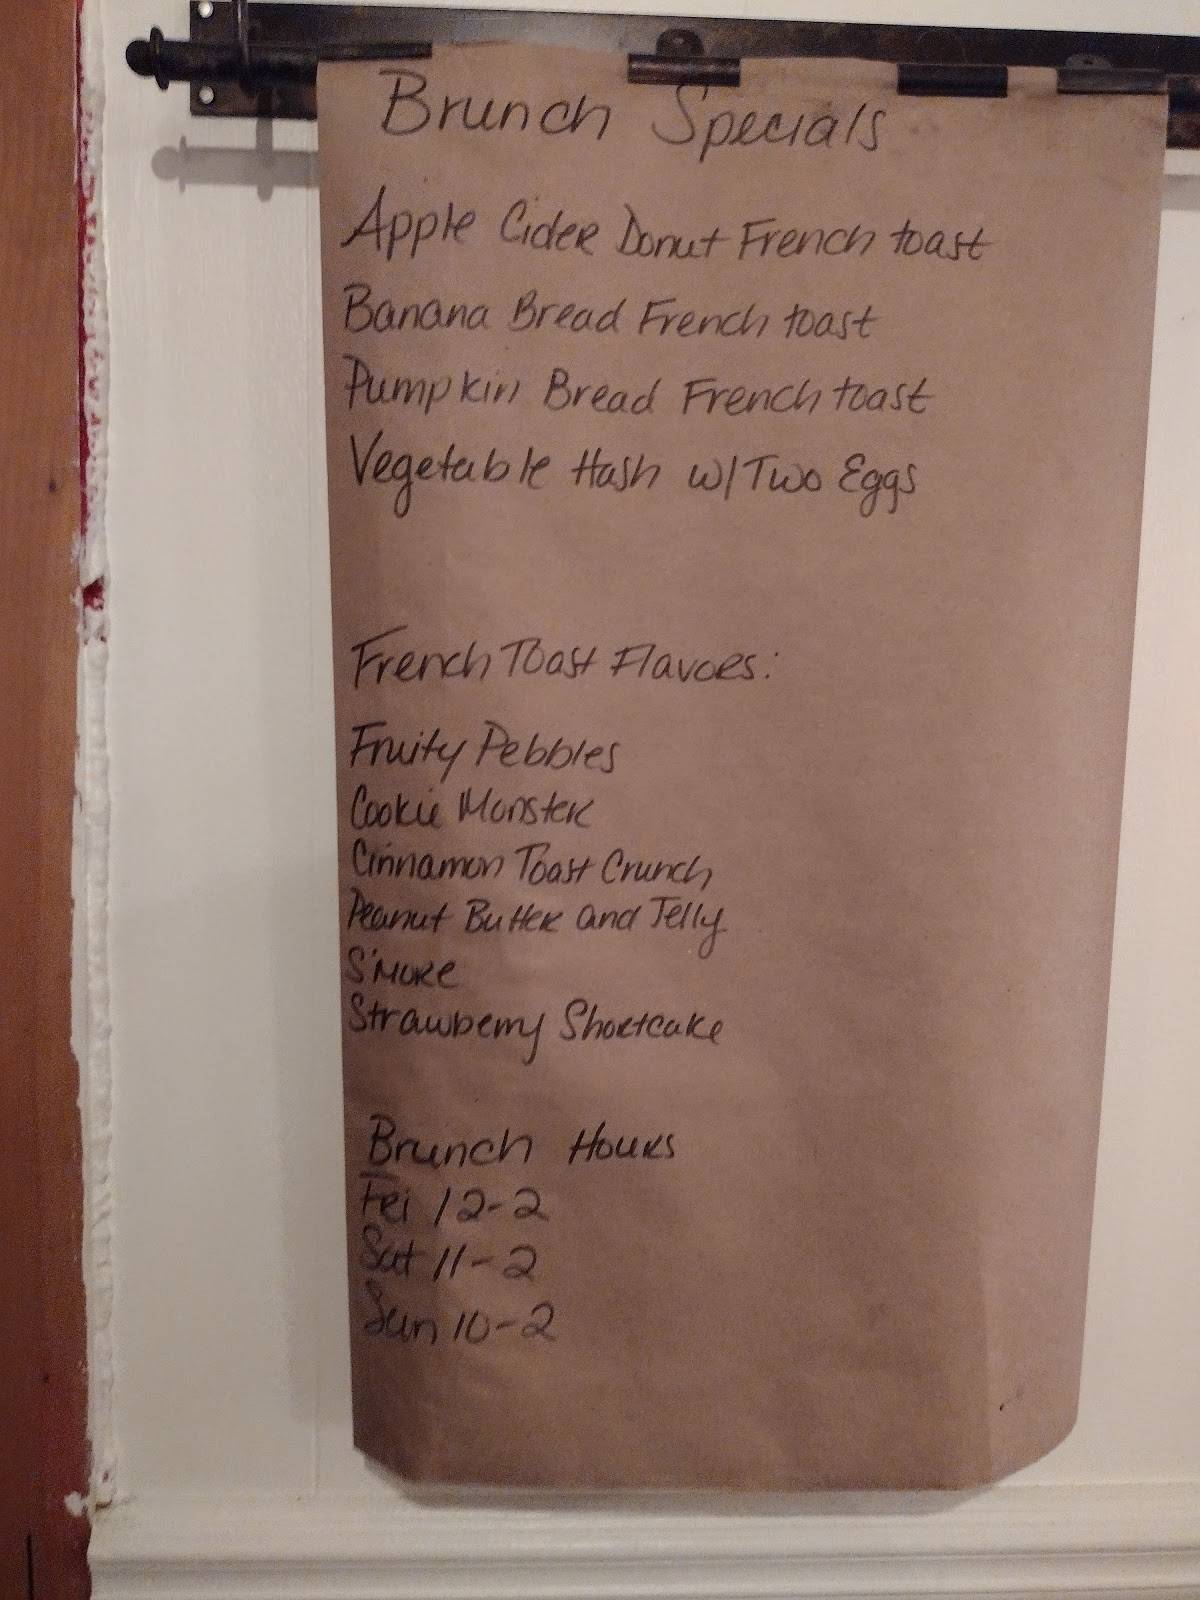 Brunch Specials
Apple Cider Donut French toast
Banana Bread French toast
Pumpkin Bread French toast
Vegetable Hash w/ Two Eggs
French Toast Flavors:
Fruity Pebbles
Cookie Monster
Cinnamon Toast Crunch
Peanut Butter and Jelly
S'more
Strawberry Shortcake
Brunch Hours
Fri 12-2
Sat 11-2
Sun 10-2